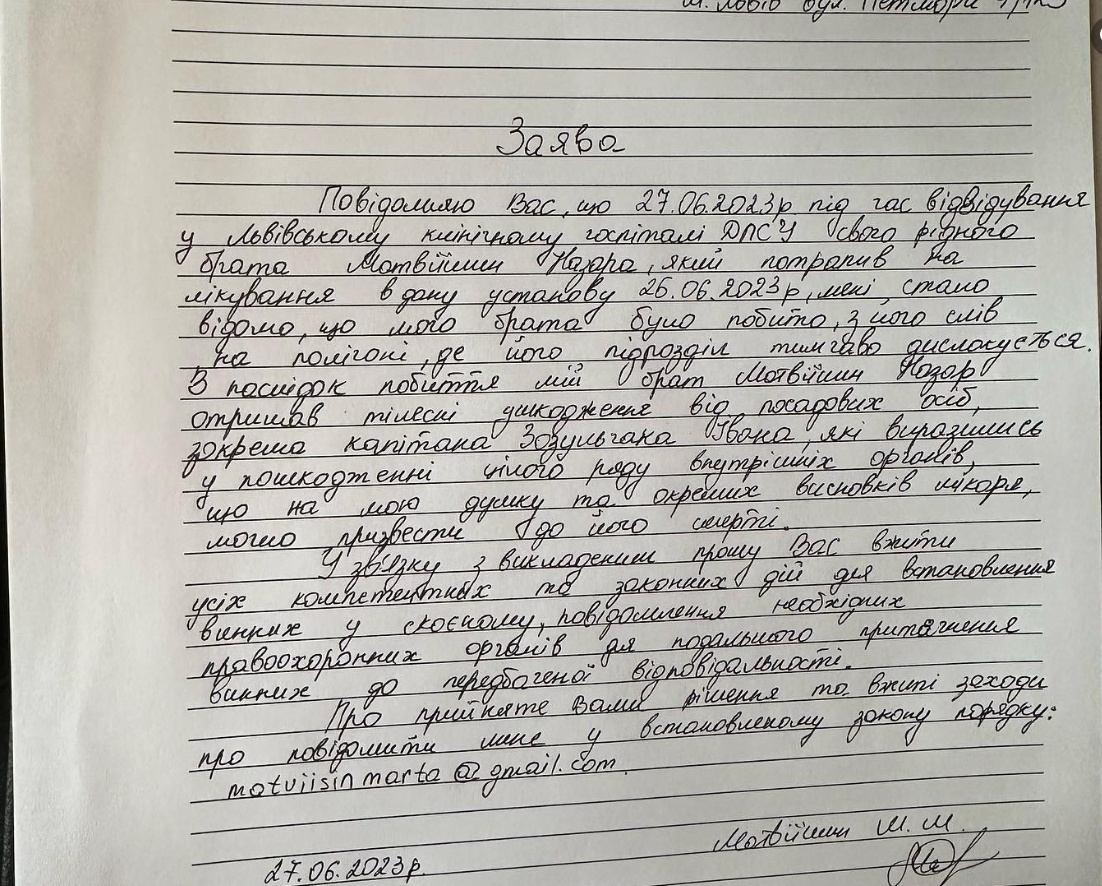 м. Львів вул.
Заява
Повідомляю Вас, що 27.06.2023р під час відвідування
у Львівському клінічному госпіталі ДПСУ свого рідного
брата Матвіїшин Назара, який потрапив на
лікування в дану установу 26.06.2023р, мені стало
відомо, що мого брата було побито, з його слів
на полігоні, де його підрозділ тимчаво дислокується.
В последок побиття мій брат Матвіїшин Назар
отримав тілесні ушкодження від посадових осіб,
зокрема капітана Зозульчака Івана, які виразились
у пошкодженні цілого ряду внутрішніх органів,
що на мою думку та окремих висновків лікаря,
могло призвести до його смерті.
У зв'язку з викладеним прошу Вас вжити
усіх компетентних та законних дій для встановлення
винних у скоєному, повідомлення необхідних
правоохоронних органів для подальшого притягнення
винних до передбаченої відповідальності.
Про прийняте Вами рішення та вжиті заходи
про повідомити мене у встановленому закону порядку:
matviisinmarta@gmail.com
Матвіїшин М. М.
27.06.2023р.